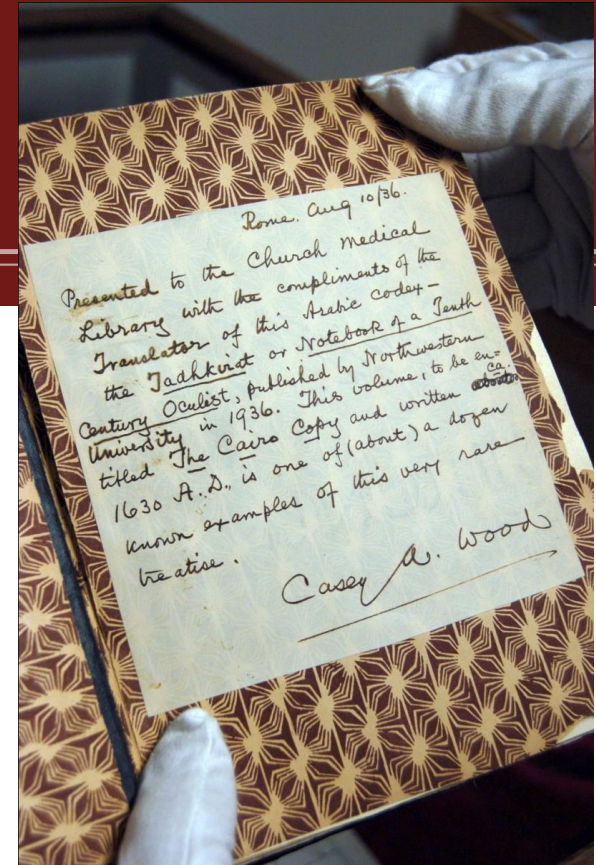 Rome. Aug 10/36.
Presented to the Church Medical
Library with the compliments of the
Translator of this Arabic codex –
the Tadhkirat or Notebook of a Tenth
Century Oculist, published by Northwestern
University in 1936. This volume, to be en=
titled The Cairo Copy and written ca.
1630 A.D., is one of (about) a dozen
known examples of this very rare
treatise.
Casey A. Wood